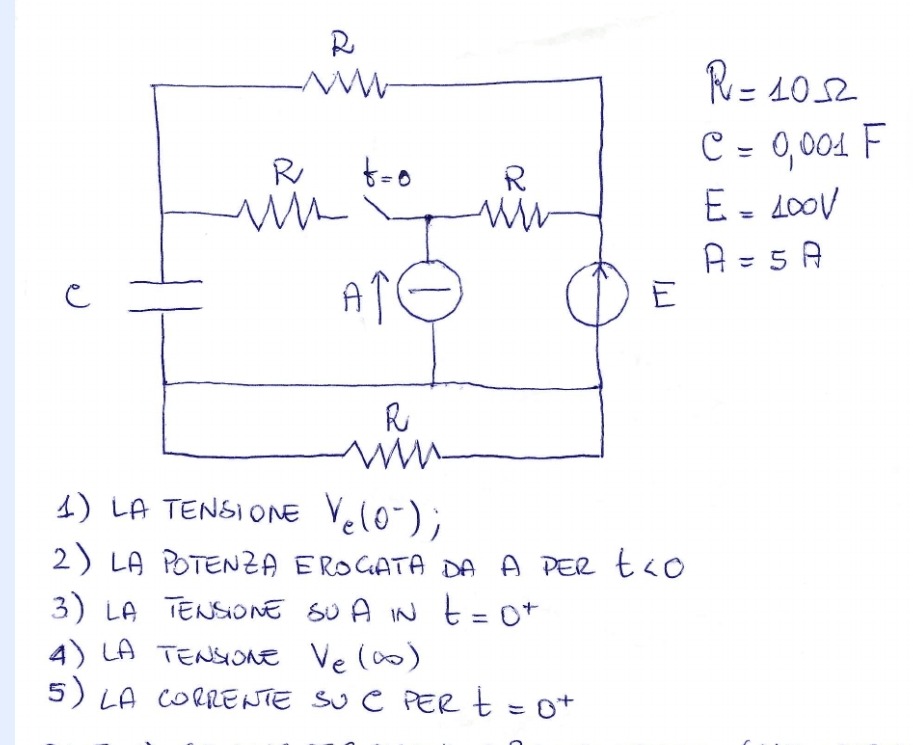 R
R = 10 Ω
C = 0,001 F
R t=0 R
E = 100V
A = 5 A
C A E
R
1) LA TENSIONE Vc(0⁻);
2) LA POTENZA EROGATA DA A PER t<0
3) LA TENSIONE SU A IN t = 0⁺
4) LA TENSIONE Vc(∞)
5) LA CORRENTE SU C PER t = 0⁺